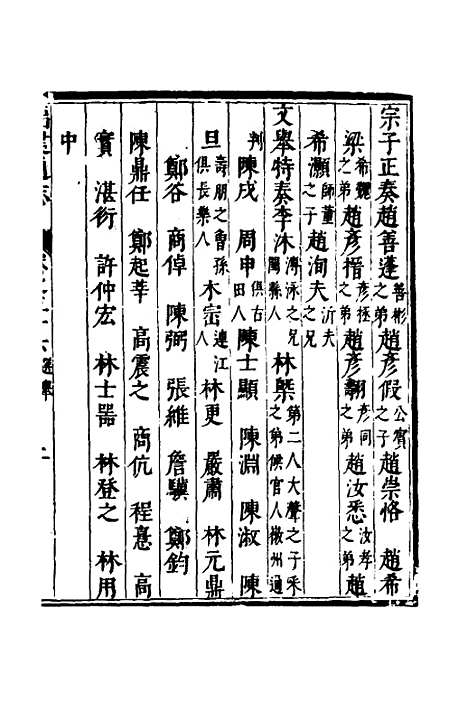 宗子正奏趙善蓬善彬之弟趙彥假公賓之子趙崇恪 趙希
梁希龍之弟趙彥搢彥拯之弟趙彥翿彥同之弟趙汝悉汝孝之弟趙
希灝師董之子趙洵夫沂夫之兄
文舉特奏李沐溥泳之兄閩縣人林㮣第二人大聲之子采之弟候官人徽州通
判陳戌 周申俱古田人陳士顯 陳淵 陳淑 陳
旦壽朋之曾孫俱長樂人木宓連江人林更 嚴肅 林元鼎
鄭谷 商倬 陳弼 張維 詹驥 鄭鈞
陳鼎任 鄭起莘 高震之 商伉 程憙 高
實 湛衍 許仲宏 林士噐 林登之 林用
中